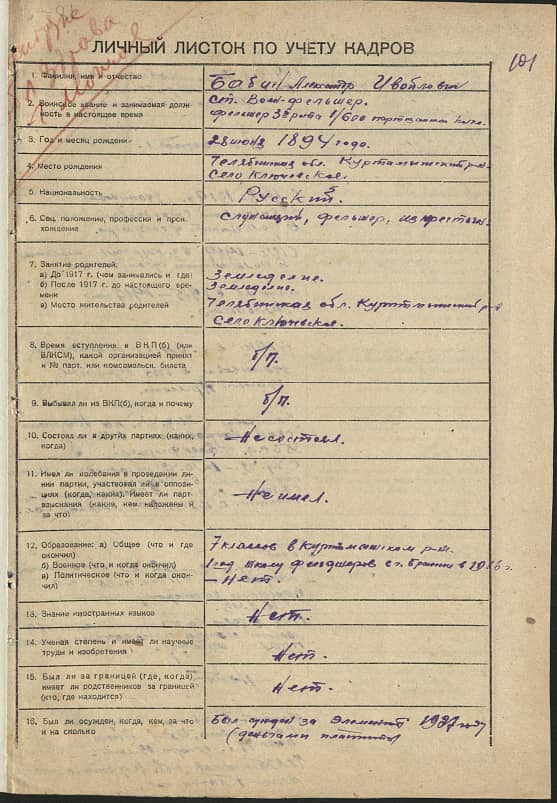 101
ЛИЧНЫЙ ЛИСТОК ПО УЧЕТУ КАДРОВ
1. Фамилия, имя и отчество
Бабин
2. Воинское звание и занимаемая долж-
ность в настоящее время
ст. Воен-фельшер.
фельшер
3. Год и месяц рождения
28 июня 1894 года.
4. Место рождения
Челябинская обл. Куртамышский р-н.
село Ключевское.
5. Национальность
Русский.
6. Соц. положение, профессия и прои-
хождение
служащий, фельшер, из крестьян.
7. Занятие родителей:
а) До 1917 г. (чем занимались и где)
б) После 1917 г. до настоящего вре-
мени
в) Место жительства родителей
Земледелие.
Земледелие.
Челябинская обл. Куртамышский р-н
село Ключевское.
8. Время вступления в ВКП(б) (или
ВЛКСМ), какой организацией принят
и № парт. или комсомольск. билета
б/п.
9. Выбывал ли из ВКП(б), когда и почему
б/п.
10. Состоял ли в других партиях (каких,
когда)
Не состоял.
11. Имел ли колебания в проведении ли-
нии партии, участвовал ли в оппози-
циях (когда, каких). Имеет ли парт-
взыскания (какие, кем наложены и
за что)
Не имел.
12. Образование: а) Общее (что и где
окончил)
б) Военное (что и когда окончил)
в) Политическое (что и когда окон-
чил)
7 классов в Куртамышском р-не.
школу фельдшеров
Нет.
13. Знание иностранных языков
Нет.
14. Ученая степень и имеет ли научные
труды и изобретения
Нет.
15. Был ли за границей (где, когда)
имеет ли родственников за границей
(кто, где находится)
Нет.
16. Был ли осужден, когда, кем, за что
и на сколько
Был суден за
(деньгами